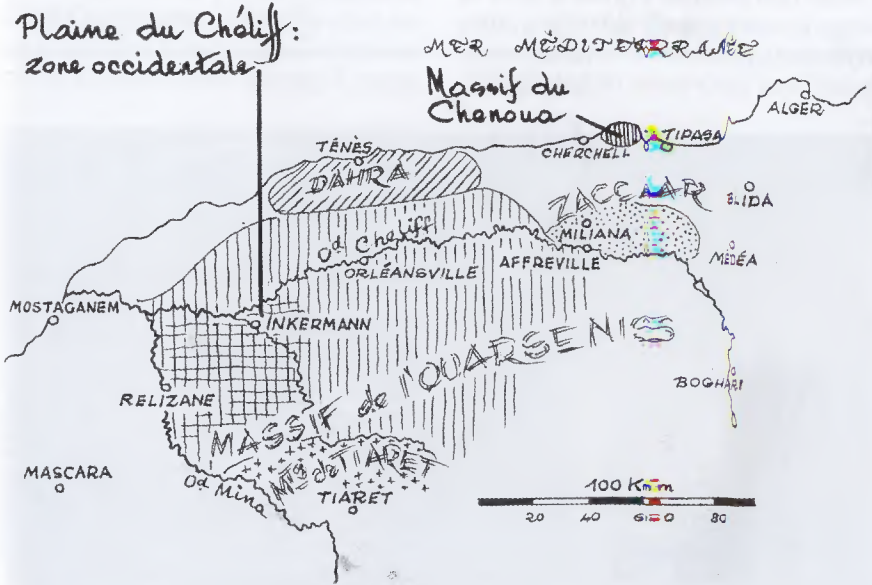 Plaine du Chéliff:
zone occidentale
MER MÉDITERRANÉE
Massif du
Chenoua
ALGER
TIPASA
CHERCHELL
TÉNÈS
DAHRA
ZACCAR
BLIDA
MILIANA
Od Cheliff
ORLÉANSVILLE
AFFREVILLE
MÉDÉA
MOSTAGANEM
INKERMANN
MASSIF de l'OUARSENIS
BOGHARI
RELIZANE
Mts de TIARET
MASCARA
Od Mina
TIARET
100 Km
20 40 60 80